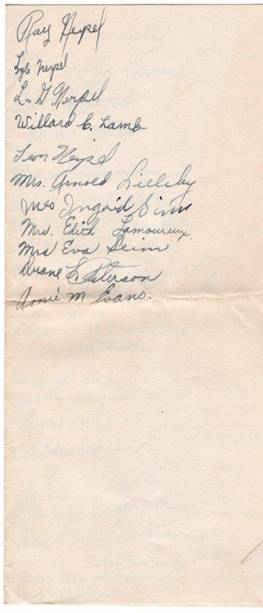 Ray Neysel
Lyle Neysel
L. G. Neysel
Willard C. Lamb
Leon Neysel
Mrs. Arnold Lilleby
Mrs Ingrid Sims
Mrs. Edith Lamoureux.
Mrs Eva Seim
Duane L. Peterson
Annie M Evans.